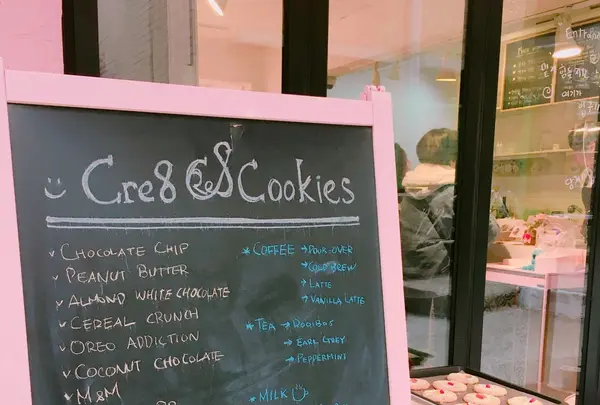 Cre8 Cookies
CHOCOLATE CHIP
PEANUT BUTTER
ALMOND WHITE CHOCOLATE
CEREAL CRUNCH
OREO ADDICTION
COCONUT CHOCOLATE
M&M
COFFEE → POUR-OVER
→ COLD BREW
→ LATTE
→ VANILLA LATTE
TEA → ROOIBOS
→ EARL GREY
→ PEPPERMINT
MILK
Entrance